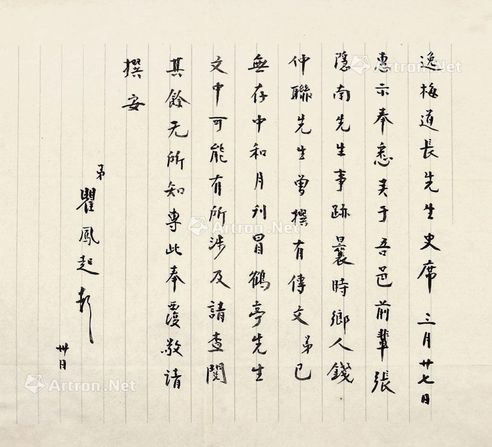 逸梅道长先生史席 三月廿七日
惠示奉悉关于吾邑前辈張
隐南先生事跡曩時鄉人錢
仲聯先生曾撰有傳文 弟已
無存中和月刊冒鶴亭先生
文中可能有所涉及請查閱
其餘无所知專此奉覆敬请
撰安
弟
瞿鳳起
卅日
Artron.Net
Artron.Net
Artron.Net
Artron.Net